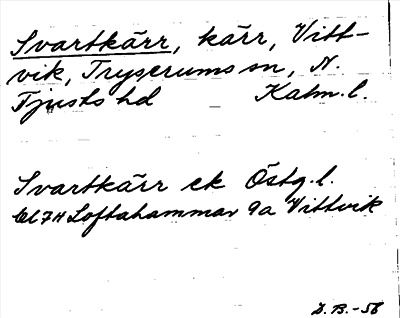 Svartkärr, kärr, Vitt-
vik, Tryserums sn, N.
Tjusts hd Kalm. l.
Svartkärr ek Östg. l.
7H Loftahammar 9a Vittvik
D. B. - 56